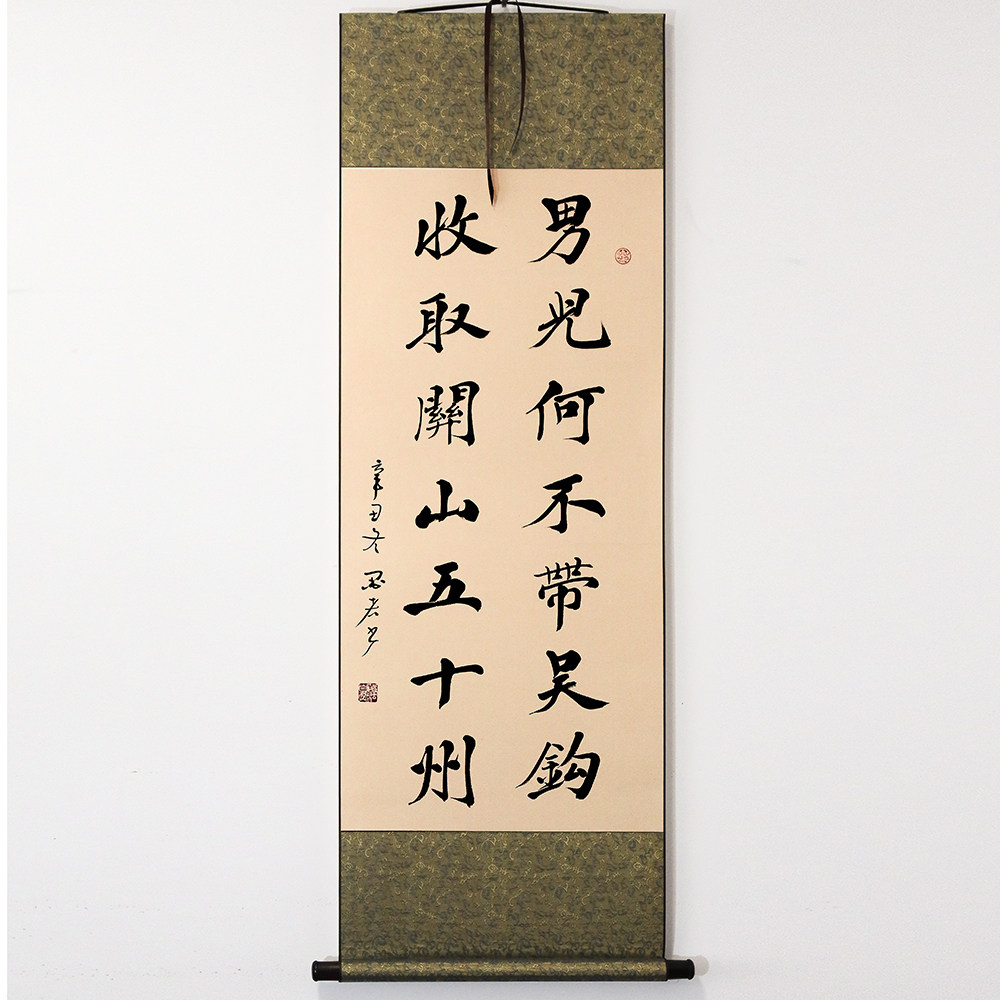 男兒何不帶吳鈎
收取關山五十州
辛丑冬